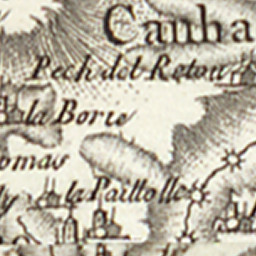 Cauha
Pech del Retou
la Borie
omas
ly
la Paillolle